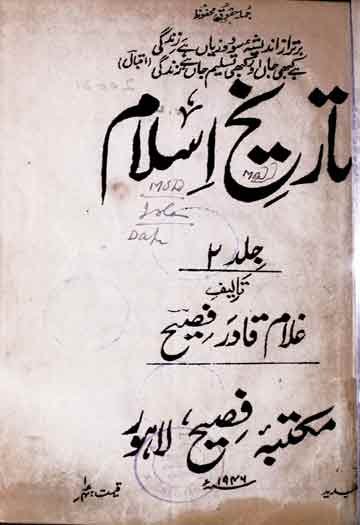 جملہ حقوق محفوظ
برتر از اندیشۂ سود و زیاں ہے زندگی
ہے کبھی جاں اور کبھی تسلیم جاں ہے زندگی (اقبال)
تاریخ اسلام
جلد ۲
تالیف
غلام قادر فصیح
مکتبۂ فصیح، لاہور
۱۹۴۶ء
قیمت: